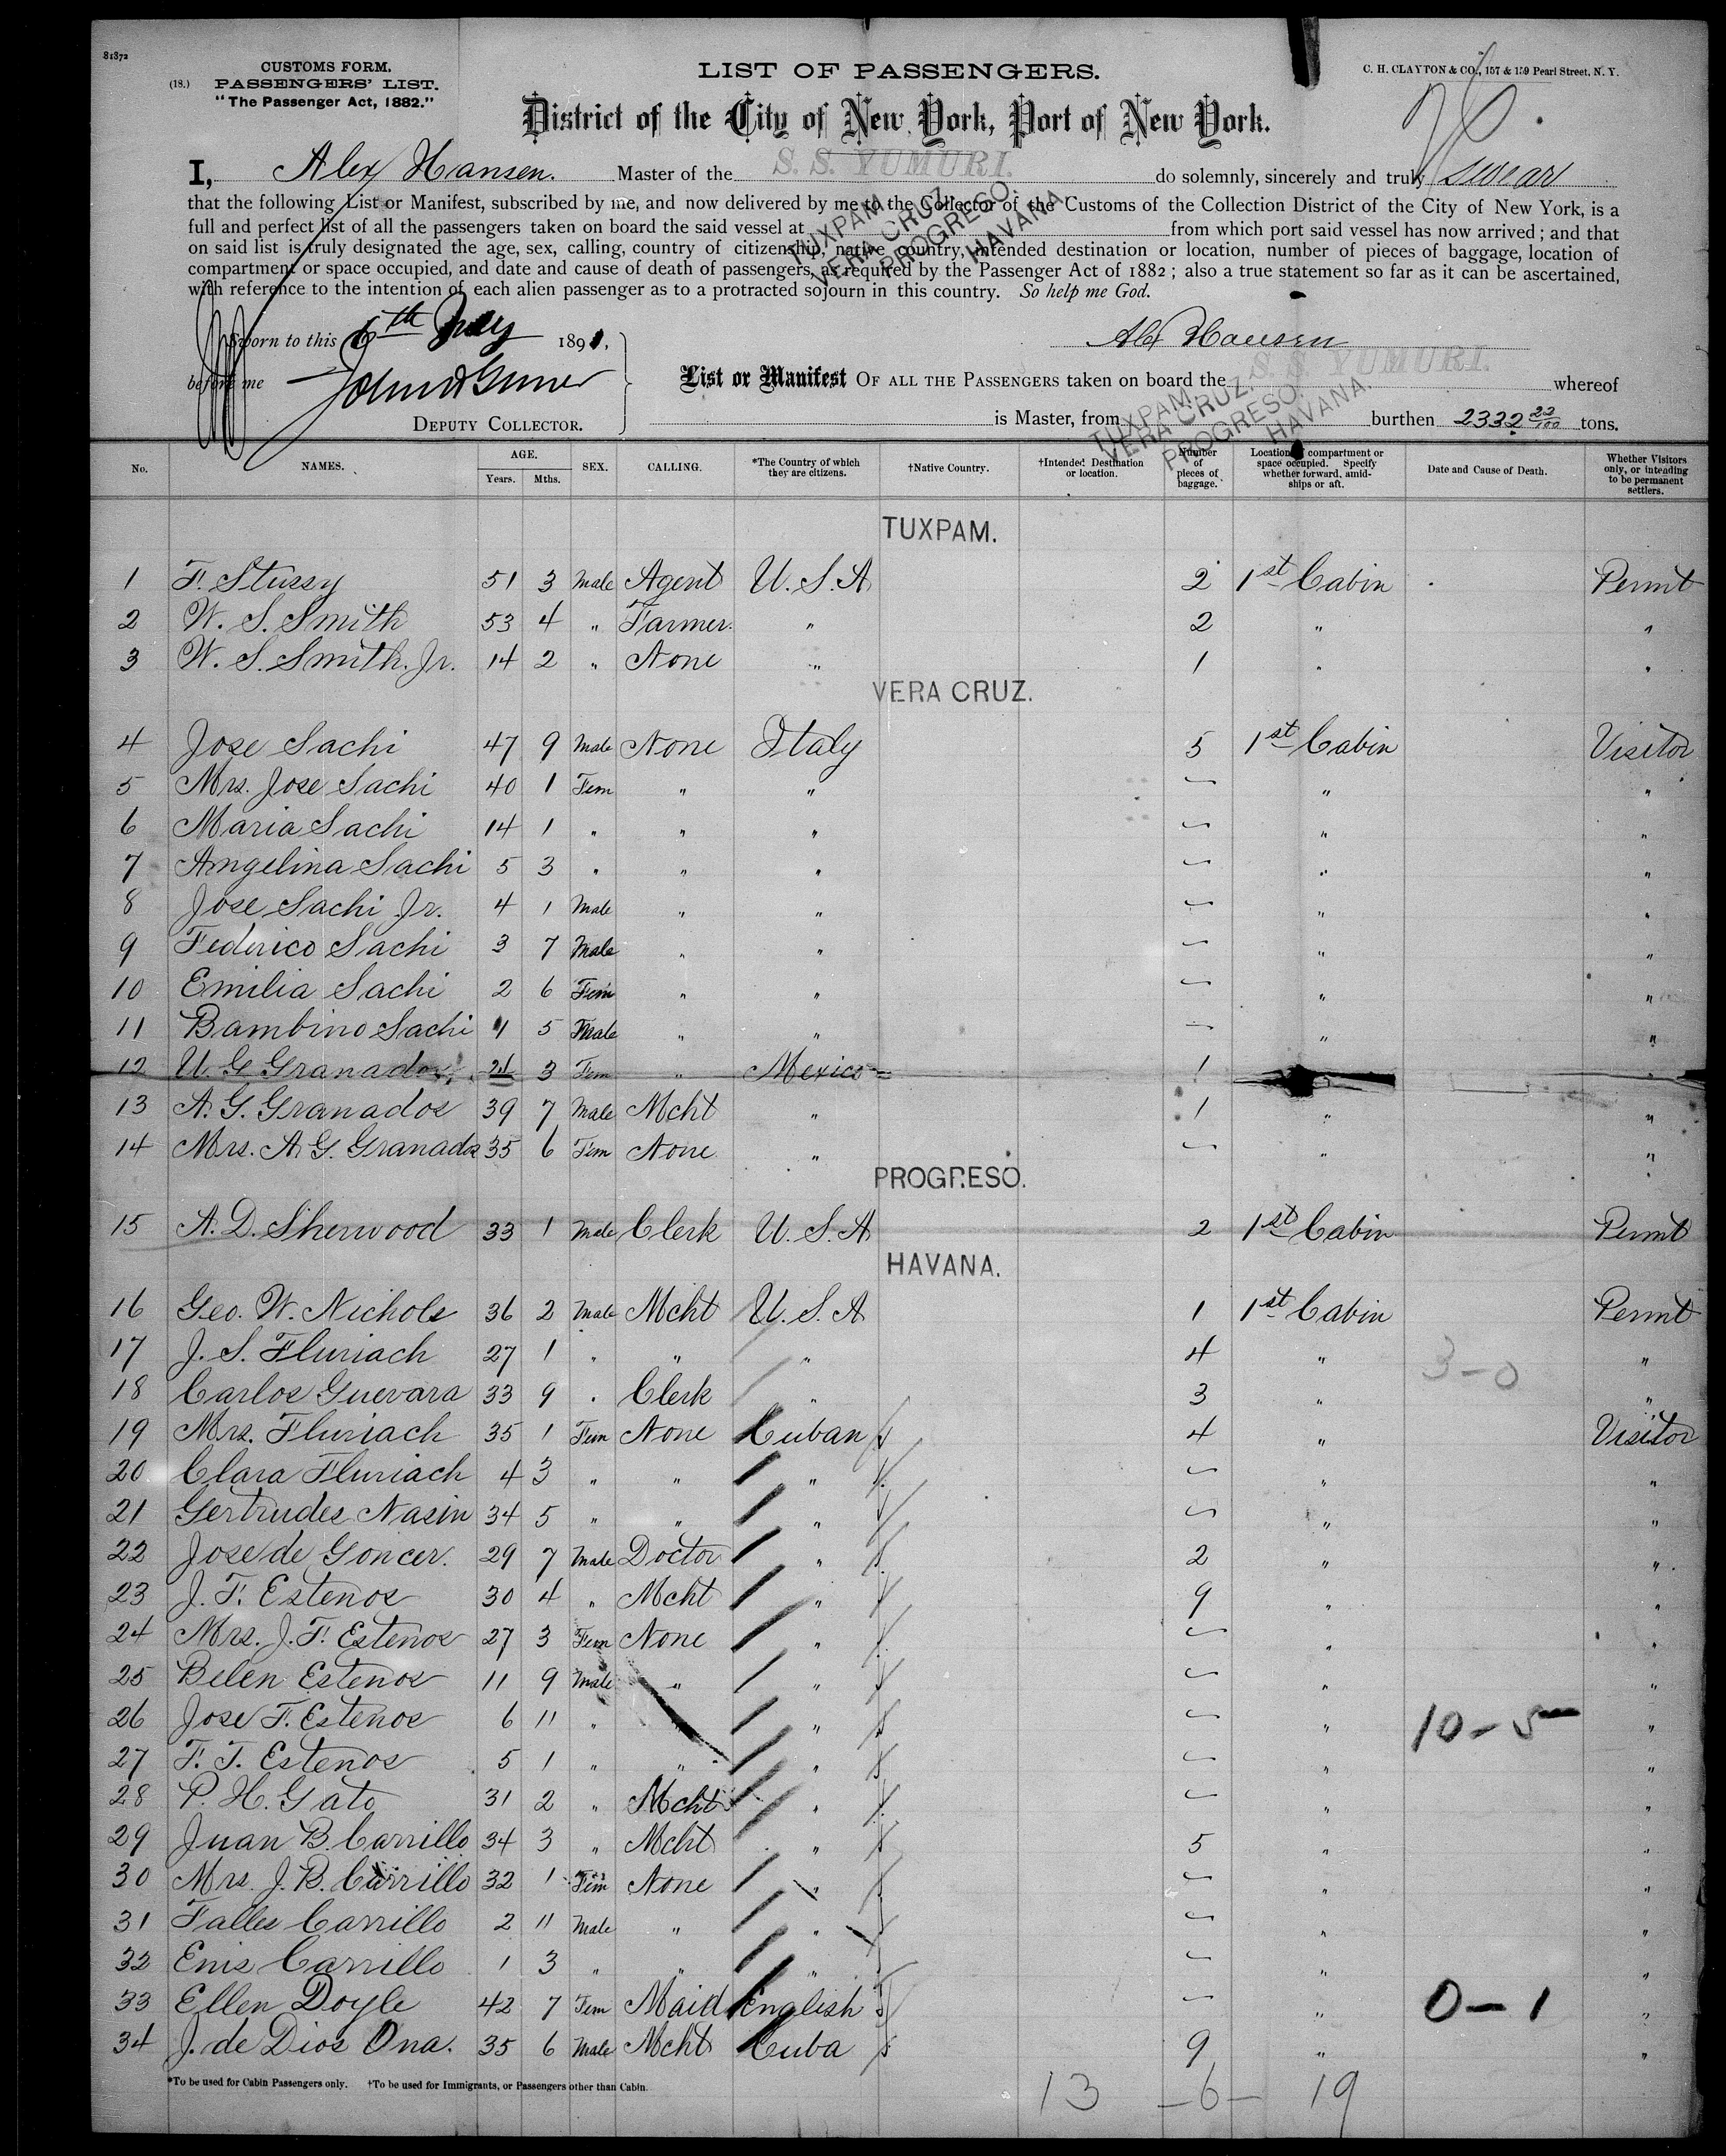 81872
CUSTOMS FORM.
(18.) PASSENGERS' LIST.
"The Passenger Act, 1882."
LIST OF PASSENGERS.
C. H. CLAYTON & CO., 157 & 159 Pearl Street, N. Y.
District of the City of New York, Port of New York.
I, Alex Hansen. Master of the S. S. YUMURI. do solemnly, sincerely and truly swear
that the following List or Manifest, subscribed by me, and now delivered by me to the Collector of the Customs of the Collection District of the City of New York, is a
full and perfect list of all the passengers taken on board the said vessel at TUXPAM. VERA CRUZ. PROGRESO. HAVANA. from which port said vessel has now arrived; and that
on said list is truly designated the age, sex, calling, country of citizenship, native country, intended destination or location, number of pieces of baggage, location of
compartment or space occupied, and date and cause of death of passengers, as required by the Passenger Act of 1882; also a true statement so far as it can be ascertained,
with reference to the intention of each alien passenger as to a protracted sojourn in this country. So help me God.
Sworn to this 6th July 1891,
Alex Hansen
before me
List or Manifest OF ALL THE PASSENGERS taken on board the S. S. YUMURI. whereof
DEPUTY COLLECTOR.
is Master, from TUXPAM. VERA CRUZ. PROGRESO. HAVANA. burthen 2332 23/100 tons.
No. NAMES. AGE. Years. Mths. SEX. CALLING. *The Country of which they are citizens. †Native Country. †Intended Destination or location. Number of pieces of baggage. Location of compartment or space occupied. Specify whether forward, amidships or aft. Date and Cause of Death. Whether Visitors only, or intending to be permanent settlers.
TUXPAM.
1 F. Stussy 51 3 Male Agent U. S. A 2 1st Cabin Permt
2 W. S. Smith 53 4 " Farmer. " 2 " "
3 W. S. Smith. Jr. 14 2 " None " 1 " "
VERA CRUZ.
4 Jose Sachi 47 9 Male None Italy 5 1st Cabin Visitor
5 Mrs. Jose Sachi 40 1 Fem " " " "
6 Maria Sachi 14 1 " " " " "
7 Angelina Sachi 5 3 " " " " "
8 Jose Sachi Jr. 4 1 Male " " " "
9 Federico Sachi 3 7 Male " " " "
10 Emilia Sachi 2 6 Fem " " " "
11 Bambino Sachi 1 5 Male " " " "
12 U. G. Granados 21 3 Fem " Mexico 1 "
13 A. G. Granados 39 7 Male Mcht " 1 " "
14 Mrs. A. G. Granados 35 6 Fem None " " "
PROGRESO.
15 A. D. Sherwood 33 1 Male Clerk U. S. A 2 1st Cabin Permt
HAVANA.
16 Geo. W. Nichols 36 2 Male Mcht U. S. A 1 1st Cabin Permt
17 J. S. Fluriach 27 1 " " " 4 " 3-0 "
18 Carlos Guevara 33 9 " Clerk " 3 " "
19 Mrs. Fluriach 35 1 Fem None Cuban 4 " Visitor
20 Clara Fluriach 4 3 " " " " "
21 Gertrudes Nasin 34 5 " " " " "
22 Jose de Goncer. 29 7 Male Doctor " 2 " "
23 J. F. Estenos 30 4 " Mcht " 9 " "
24 Mrs. J. F. Estenos 27 3 Fem None " " "
25 Belen Estenos 11 9 Male " " " "
26 Jose F. Estenos 6 11 " " " " 10-5 "
27 F. T. Estenos 5 1 " " " " "
28 P. H. Gato 31 2 " Mcht " " "
29 Juan B. Carrillo 34 3 " Mcht " 5 " "
30 Mrs. J. B. Carrillo 32 1 Fem None " " "
31 Falles Carrillo 2 11 Male " " " "
32 Enis Carrillo 1 3 " " " " "
33 Ellen Doyle 42 7 Fem Maid English " 0-1 "
34 J. de Dios Ona. 35 6 Male Mcht Cuba 9 " "
*To be used for Cabin Passengers only. †To be used for Immigrants, or Passengers other than Cabin.
13 -6- 19